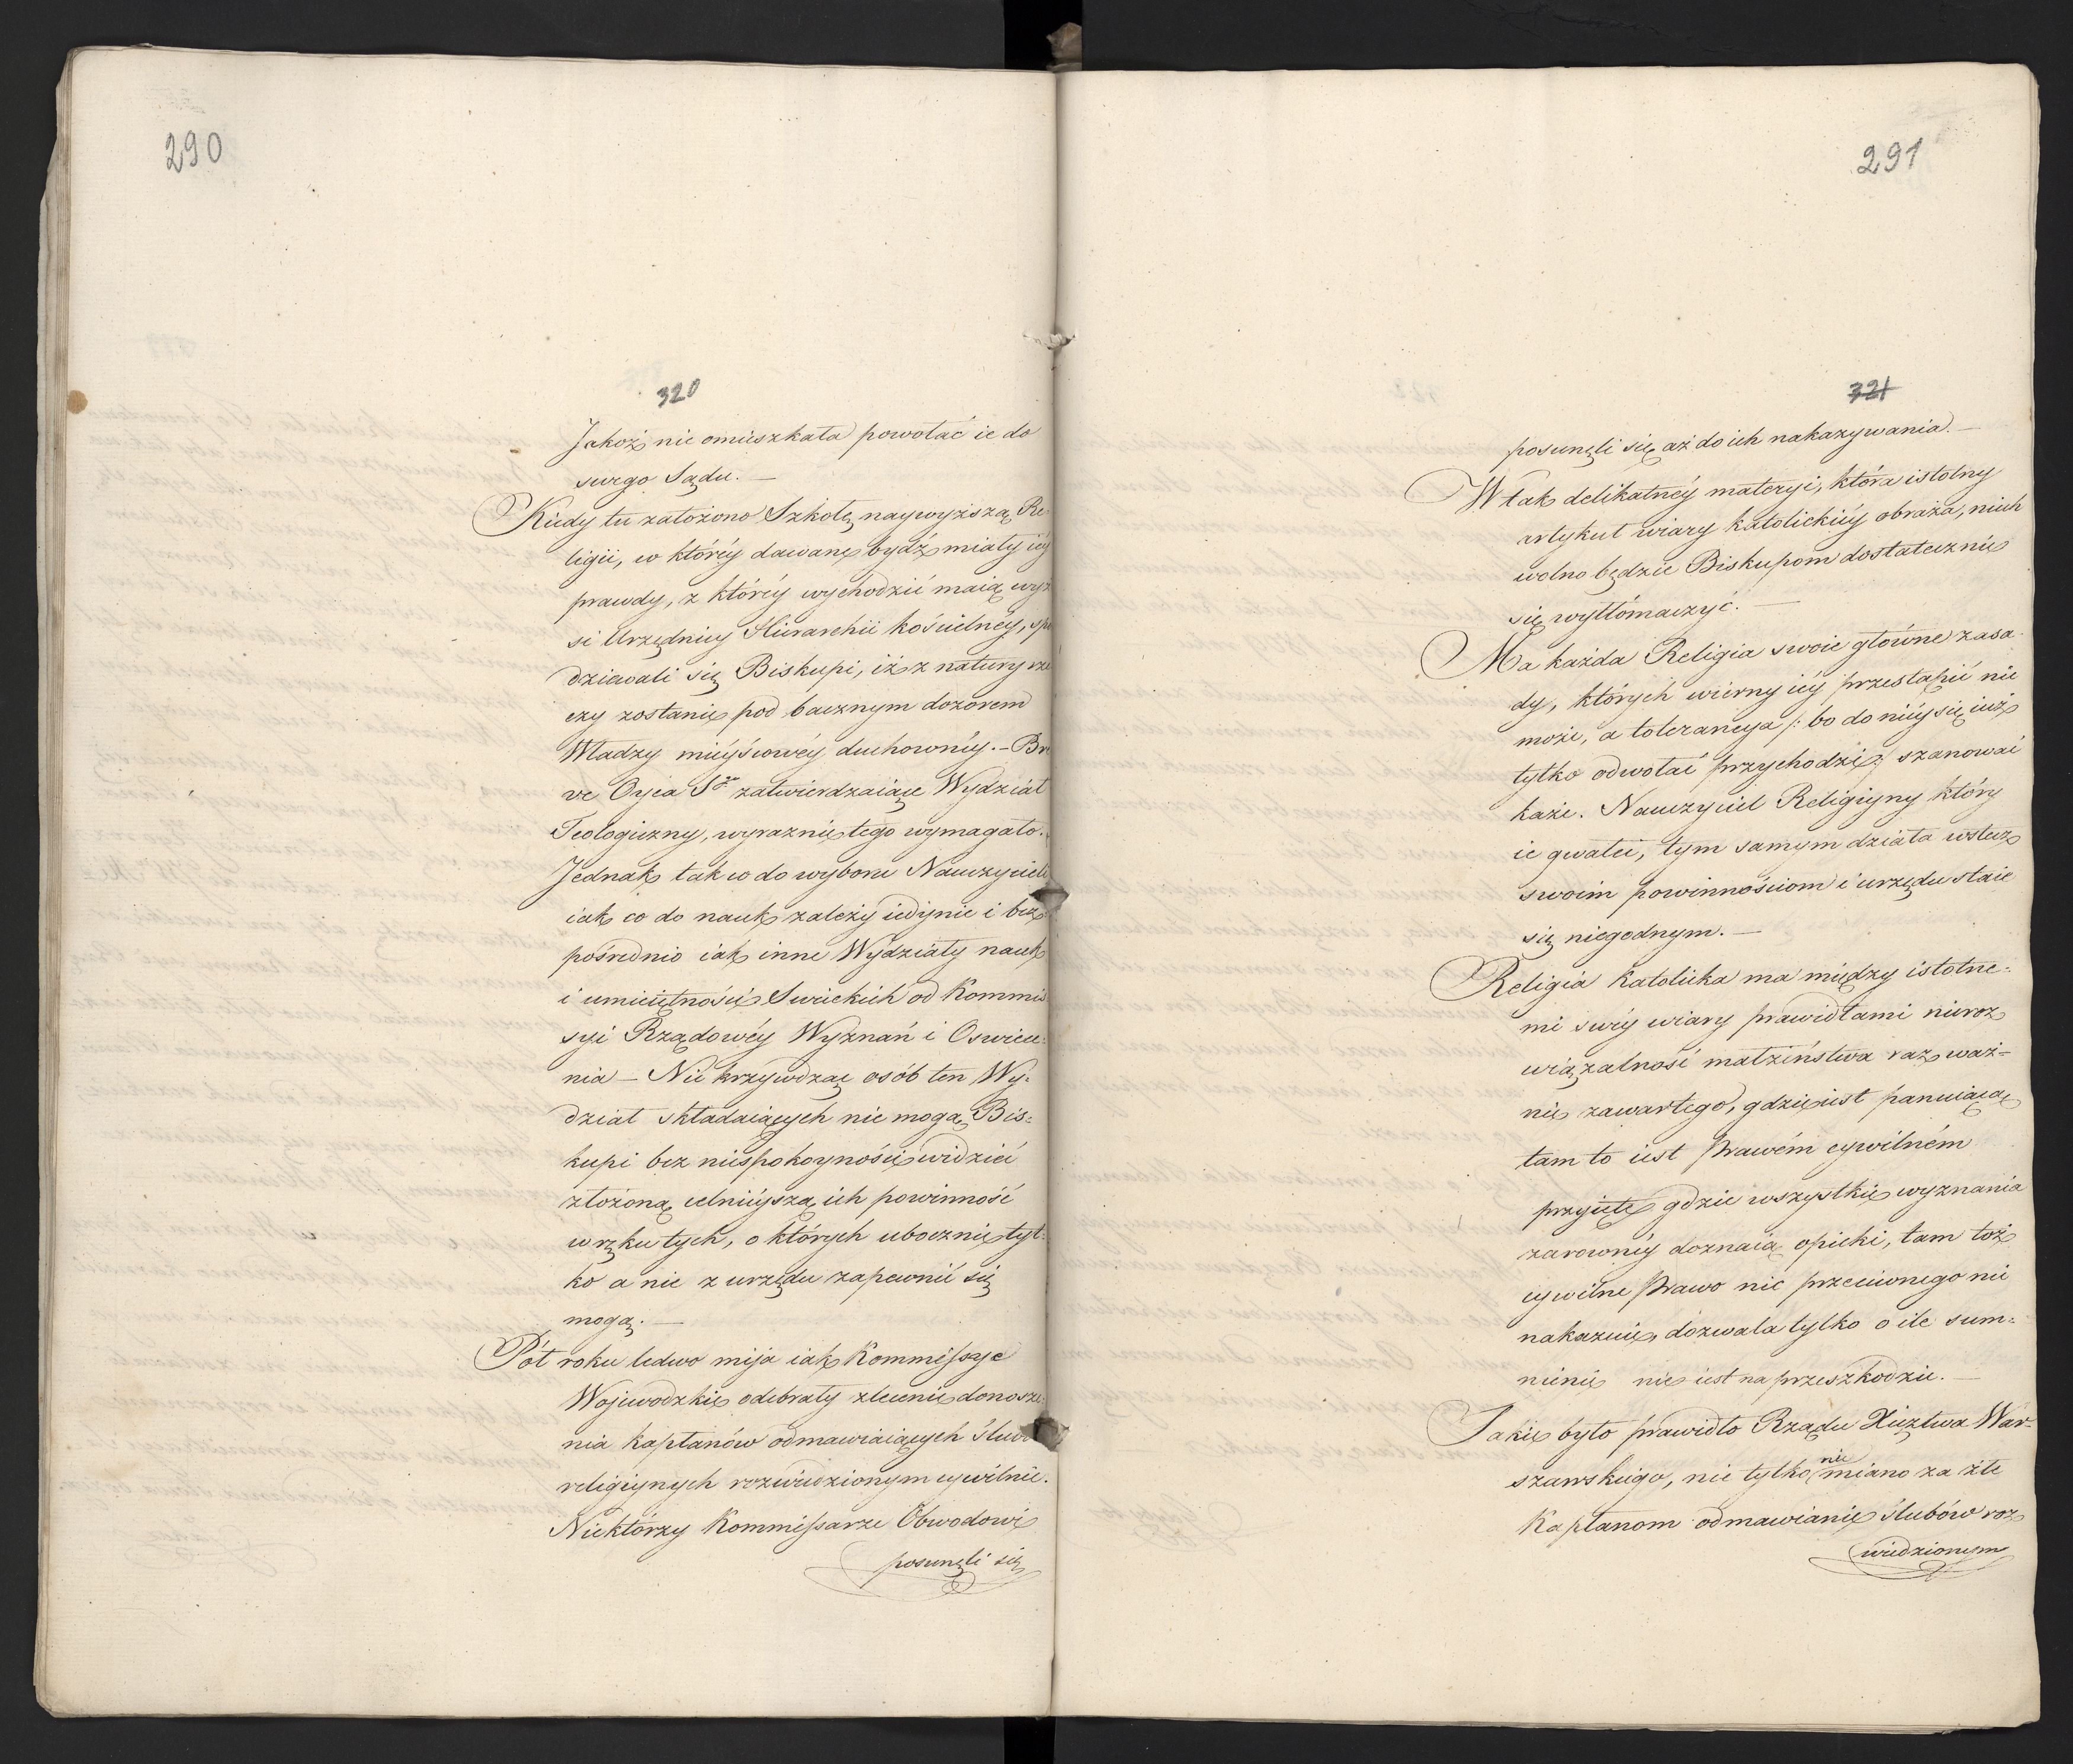 290
320
Jakoż nie omieszkała powołać ie do
swego Sądu. —
Kiedy tu założono Szkołę naywyższą Re-
ligii, w któréy dawane bydź miały iey
prawdy, z któréy wychodzić maią wyż
si Urzędnicy Hierarchii kościelnéy, spo
dziewali się Biskupi, iż z natury rze
czy zostanie pod bacznym dozorem
Władzy mieyscowéy duchownéy. – Bre
ve Oyca Sgo zatwierdzaiące Wydział
Teologiczny, wyraznie tego wymagało.
Jednak tak co do wyboru Nauczycieli
iak co do nauk zależy iedynie i bez
pośrednio iak inne Wydziały nauk
i umieiętności Swieckich od Kommis
syi Rządowéy Wyznań i Oswiece:
nia – Nie krzywdząc osób ten Wy-
dział składaiących nie mogą Bis=
kupi bez niespokoyności widzieć
złożoną celnieyszą ich powinność
w ręku tych, o których ubocznie tyl:
ko a nie z urzędu zapewnić się
mogą. —
Pół roku ledwo mija iak Kommissye
Wojewodzkie odebrały zlecenie donosze:
nia kapłanów odmawiaiących ślub
religiynych rozwiedzionym cywilnie.
Niektórzy Kommissarze Obwodowi
posunęli się
291
321
posunęli się aż do ich nakazywania. —
W tak delikatnéy materyi, która istotny
artykuł wiary katolickiéy obraża, niech
wolno będzie Biskupom dostatecznie
się wytłómaczyć. —
Ma każda Religia swoie główne zasa-
dy, których wierny iéy przestąpić nie
może, a tolerancya /: bo do niéy się iuż
tylko odwołać przychodzi; szanować
każe. Nauczyciel Religiyny który
ie gwałci, tym samym działa wstecz
swoim powinnościom i urzędu staie
się niegodnym. —
Religia Katolicka ma między istotne:
mi swéy wiary prawidłami nieroz
wiązalność małżeństwa raz waż=
nie zawartego, gdzie iest panuiącą
tam to iest Prawém cywilném
przyięte, gdzie wszystkie wyznania
zarowniéy doznaią opieki, tam toż
cywilne Prawo nic przeciwnego nie
nakazuie, dozwala tylko o ile sum=
nienie nie iest na przeszkodzie. —
Jakie było prawidło Rządu Xięztwa War-
szawskiego, nie tylko nie miano za złe
Kapłanom odmawianie ślubów roz
wiedzionym